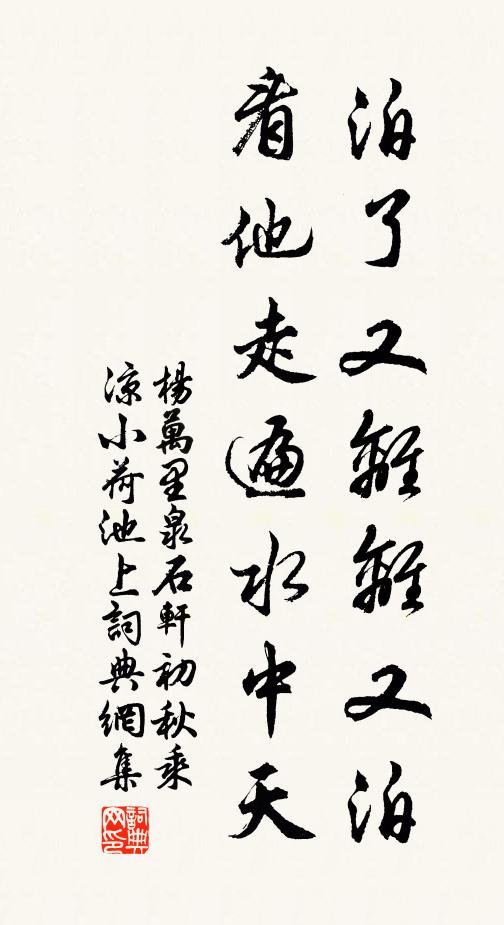 泊了又離離又泊
看他走遍水中天
楊萬里泉石軒初秋乘
涼小荷池上詞典網集
詞典
网印